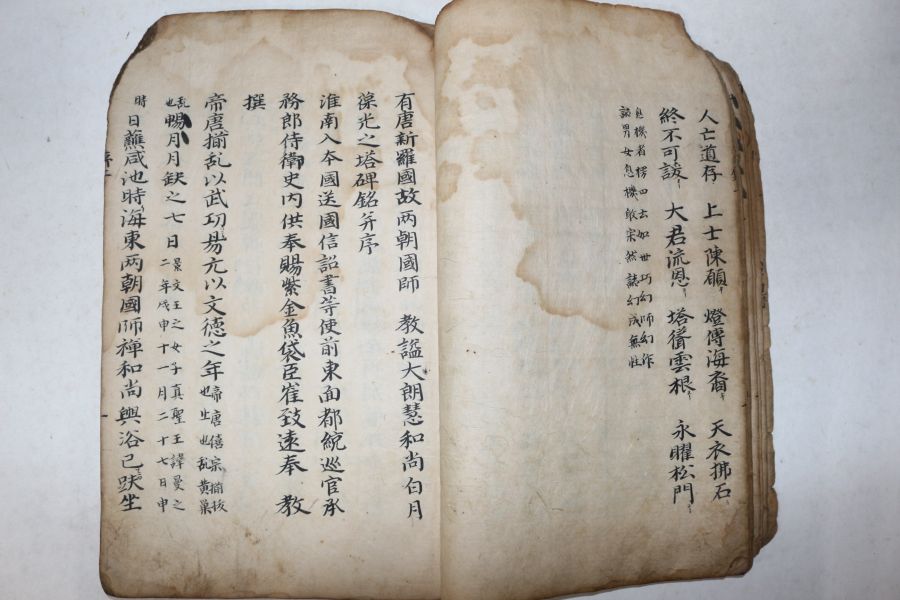 人亡道存 上士陳願 燈傳海裔 天衣拂石
終不可諼 大君流恩 塔聳雲根 永曜松門
息機者楞四云如世巧幻師幻作
諸男女息機皈宗然諸幻成無性
有唐新羅國故兩朝國師 教謚大朗慧和尚白月
葆光之塔碑銘并序
淮南入本國送國信詔書等使前東面都統巡官承
務郎侍御史內供奉賜紫金魚袋臣崔致遠奉 教
撰
帝唐揃乱以武功易元以文德之年帝唐僖宗揃拔
也止也乱黃巢
乱也暢月月缺之七日景文王之女子真聖王諱曼之
二年戊申十一月二十七日申
時日蘸咸池時海東兩朝國師禅和尚興浴已趺坐